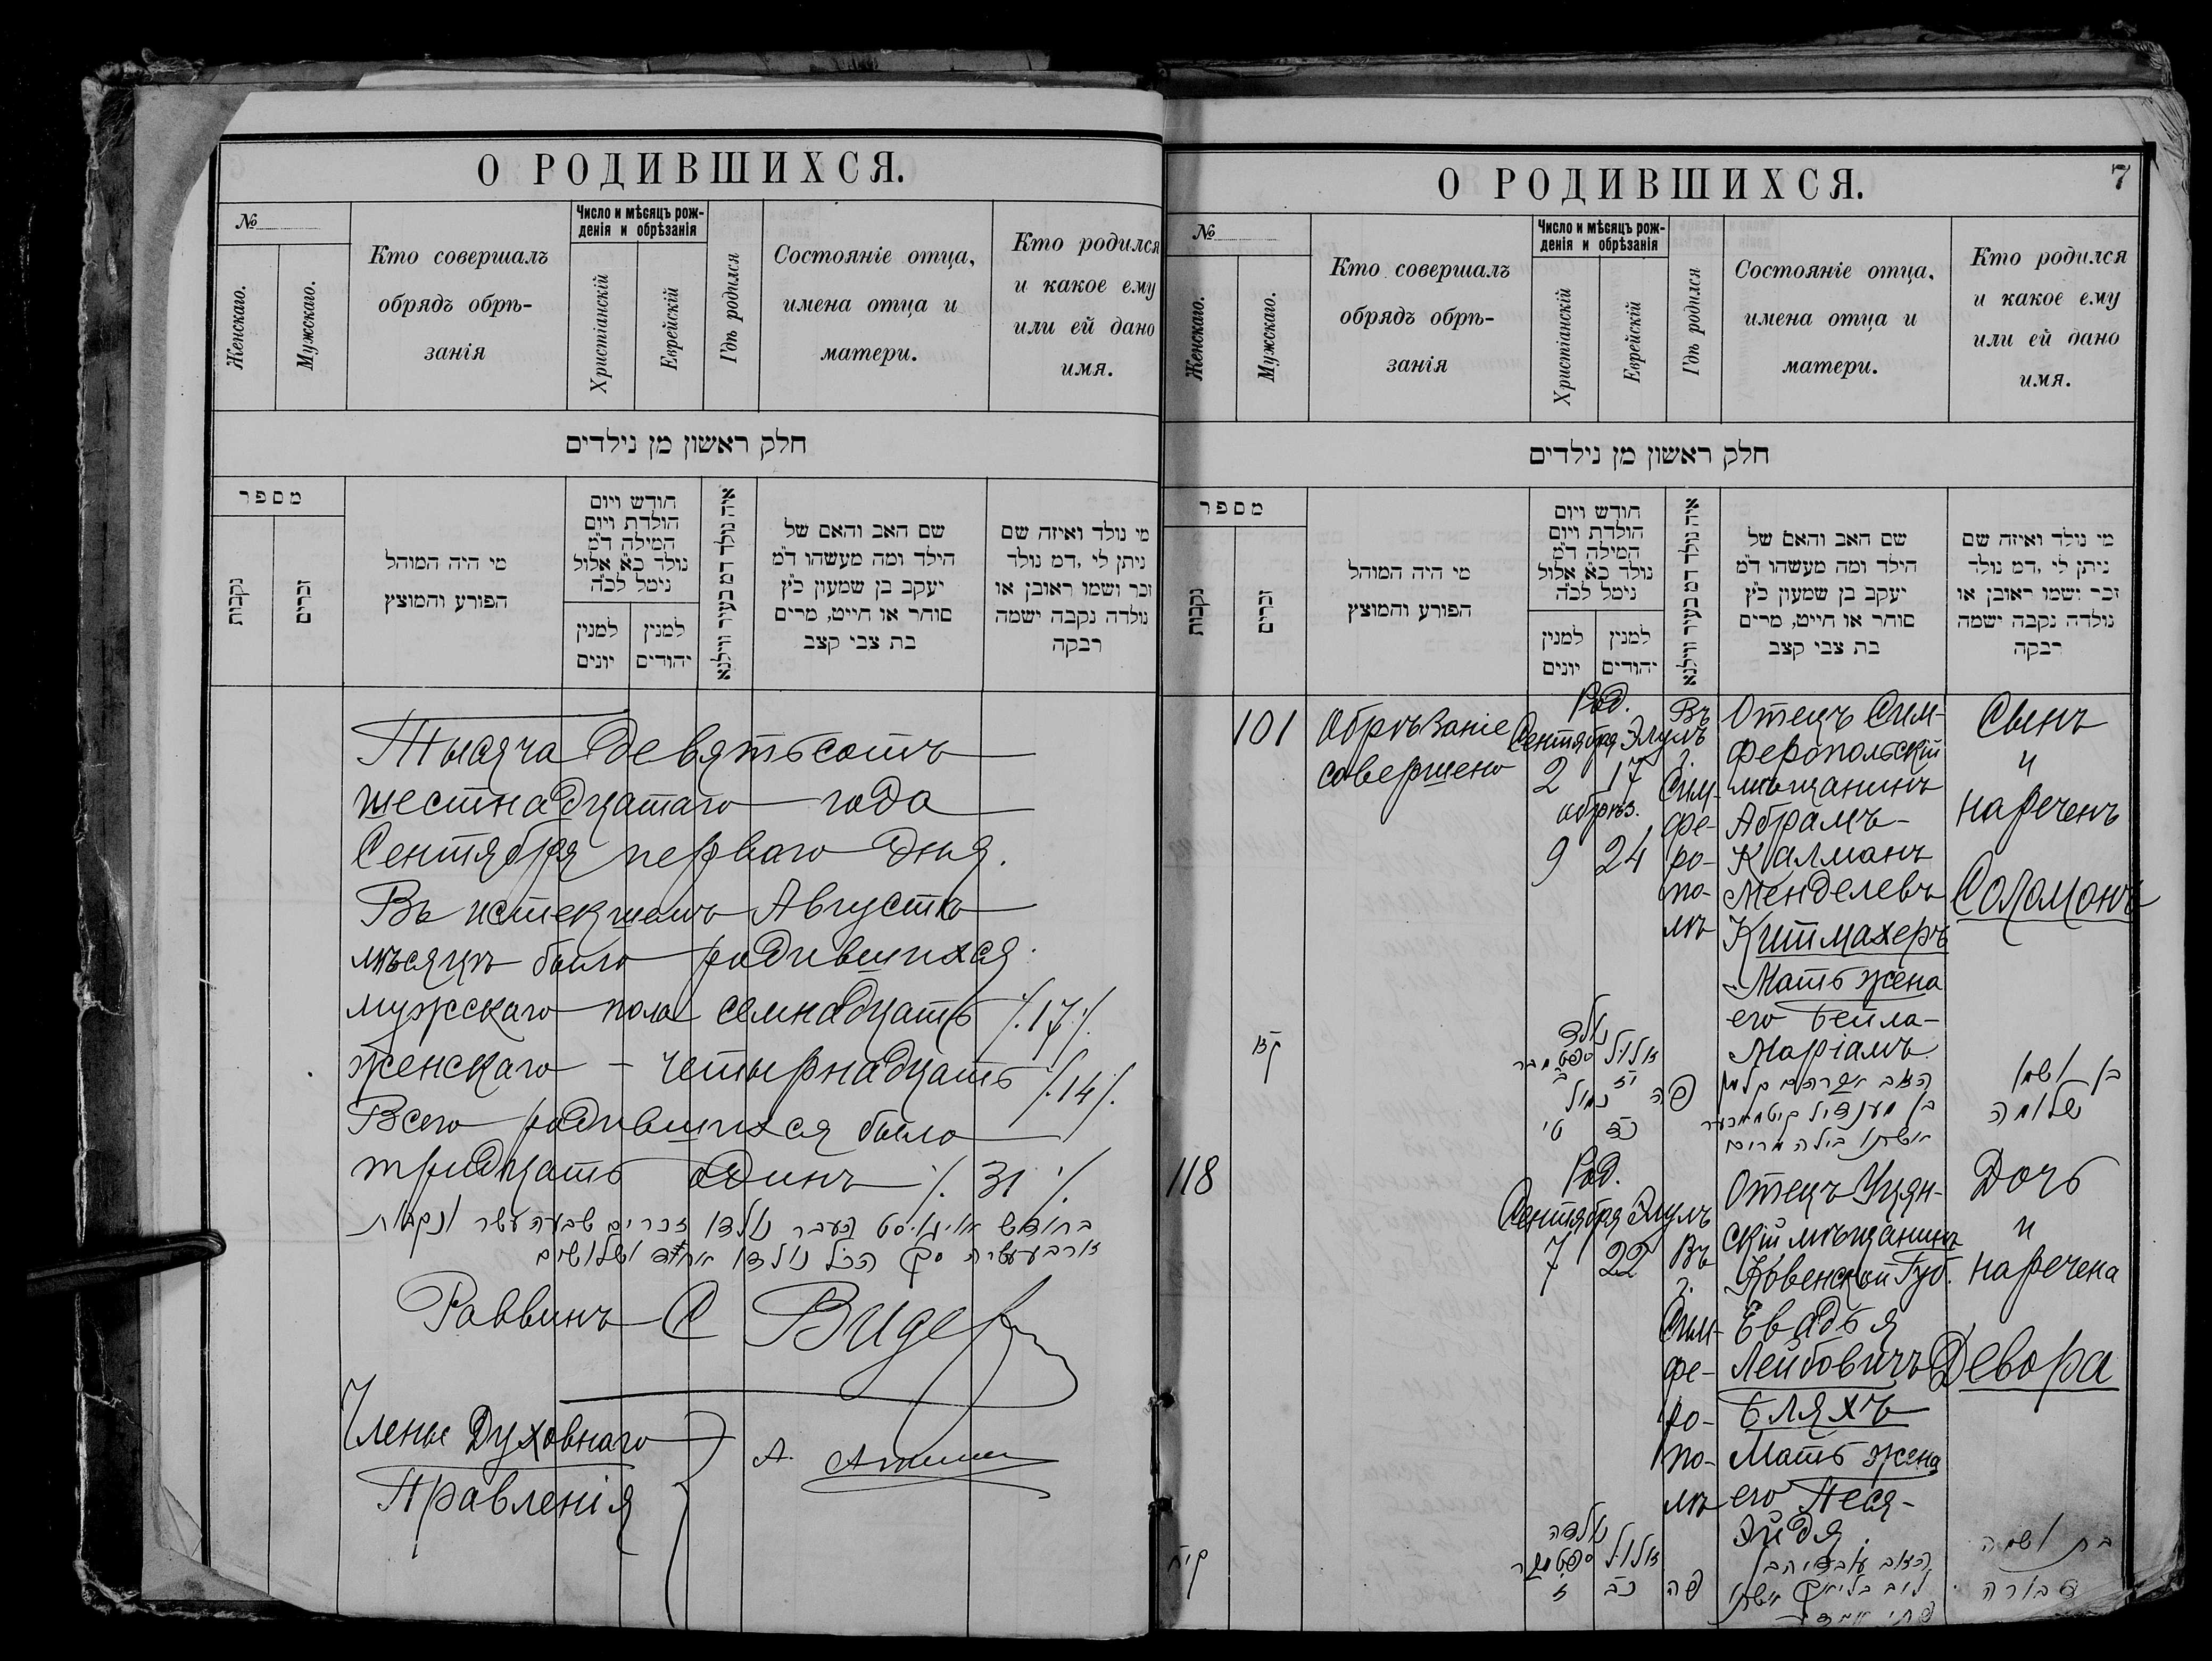 О РОДИВШИХСЯ.
№
Женскаго.
Мужскаго.
Кто совершалъ
обрядъ обрѣ-
занія
Число и мѣсяцъ рож-
денія и обрѣзанія
Христіанскій
Еврейскій
Гдѣ родился
Состояніе отца,
имена отца и
матери.
Кто родился
и какое ему
или ей дано
имя.
חלק ראשון מן נילדים
מספר
נקבות
זכרים
מי היה המוהל
הפורע והמוצץ
חודש ויום
הולדת ויום
המילה ד״מ
נולד כ״א אלול
נימל לכ״ה
למנין
יונים
למנין
יהודים
איה נולד דמ בעיר ווילנא
שם האב והאם של
הילד ומה מעשהו ד״מ
יעקב בן שמעון כ״ץ
סוחר או חייט, מרים
בת צבי קצב
מי נולד ואיזה שם
ניתן לי ,דמ נולד
זכר ושמו ראובן או
נולדה נקבה ישמה
רבקה
Тысяча девятьсотъ
шестнадцатаго года
Сентября перваго дня.
Въ истекшемъ Августѣ
мѣсяцѣ было родившихся
мужскаго пола семнадцать ./.17./.
женскаго - четырнадцать ./.14./.
Всего родившихся было
тридцать одинъ ./. 31 ./.
בחודש אויגוסט העבר נולדו זכרים שבעה עשר ונקבות
ארבע עשרה סך הכל נולדו אחד ושלושים
Раввинъ С Видер
Члены Духовнаго
Правленія
А.
О РОДИВШИХСЯ.
7
№
Женскаго.
Мужскаго.
Кто совершалъ
обрядъ обрѣ-
занія
Число и мѣсяцъ рож-
денія и обрѣзанія
Христіанскій
Еврейскій
Гдѣ родился
Состояніе отца,
имена отца и
матери.
Кто родился
и какое ему
или ей дано
имя.
חלק ראשון מן נילדים
מספר
נקבות
זכרים
מי היה המוהל
הפורע והמוצץ
חודש ויום
הולדת ויום
המילה ד״מ
נולד כ״א אלול
נימל לכ״ה
למנין
יונים
למנין
יהודים
איה נולד דמ בעיר ווילנא
שם האב והאם של
הילד ומה מעשהו ד״מ
יעקב בן שמעון כ״ץ
סוחר או חייט, מרים
בת צבי קצב
מי נולד ואיזה שם
ניתן לי ,דמ נולד
זכר ושמו ראובן או
נולדה נקבה ישמה
רבקה
101
Обрѣзаніе
совершено
Род.
Сентября Элулъ
2 17
обрѣз.
9 24
Въ
г.
Сим-
фе-
ро-
по-
лѣ
Отецъ Сим-
феропольскій
мѣщанинъ
Абрамъ-
Калманъ
Менделевъ
Китмахеръ
Мать жена
его Бейла-
Маріамъ
Сынъ
и
нареченъ
Соломонъ
קא
נולד
אלול ספטמבר
יז ב
נמול
כד ט׳
פה
האב אברהם קלמן
בן מענדיל קיטמאכער
אשתו בילה מרים
בן ושמו
שלומה
118
Род.
Сентября Элулъ
7 22
Въ
г.
Сим-
фе-
ро-
по-
лѣ
Отецъ Уцян-
скій мѣщанинъ
Ковенской Губ.
Евадья
Лейбовичъ
Бляхъ
Мать жена
его Песя-
Эйдя.
Дочь
и
наречена
Девора
קיח
נולדה
אלול ספטמבר
כב ז
פה
האב עובדיה בן
ליב בליאך אשתו
בת ושמה
דבורה